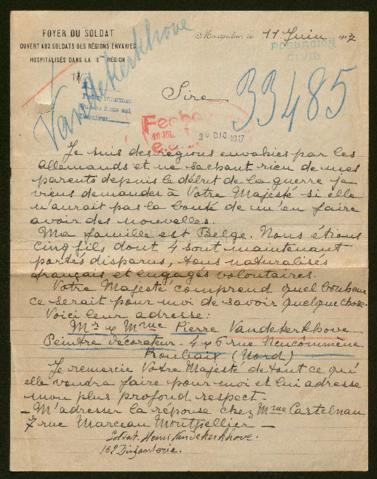 FOYER DU SOLDAT
OUVERT AUX SOLDATS DES RÉGIONS ENVAHIES
HOSPITALISÉS DANS LA RÉGION
11 Juin 17
POBLACION
CIVIL
Vandekerkhove
33485
Sire
1917
Je suis des régions envahies par les
allemands et ne sachant rien de mes
parents depuis le début de la guerre je
viens demander à Votre Majesté si elle
n'aurait pas la bonté de m'en faire
avoir des nouvelles.
Ma famille est Belge. Nous étions
cinq fils dont 4 sont maintenant
portés disparus, tous naturalisés
français et engagés volontaires.
Votre Majesté comprend quel bonheur
ce serait pour moi de savoir quelque chose
Voici leur adresse:
Mr y Mme Pierre Vandekerkhove
Peintre décorateur. 4 y 6 rue
Roubaix (Nord)
Je remercie Votre Majesté de tout ce qu'
elle voudra faire pour moi et lui adresse
mon plus profond respect.
M'adresser la réponse chez Mme Castelnau
7 rue Marceau Montpellier -
Soldat Henri Vandekerkhove
162 Infanterie